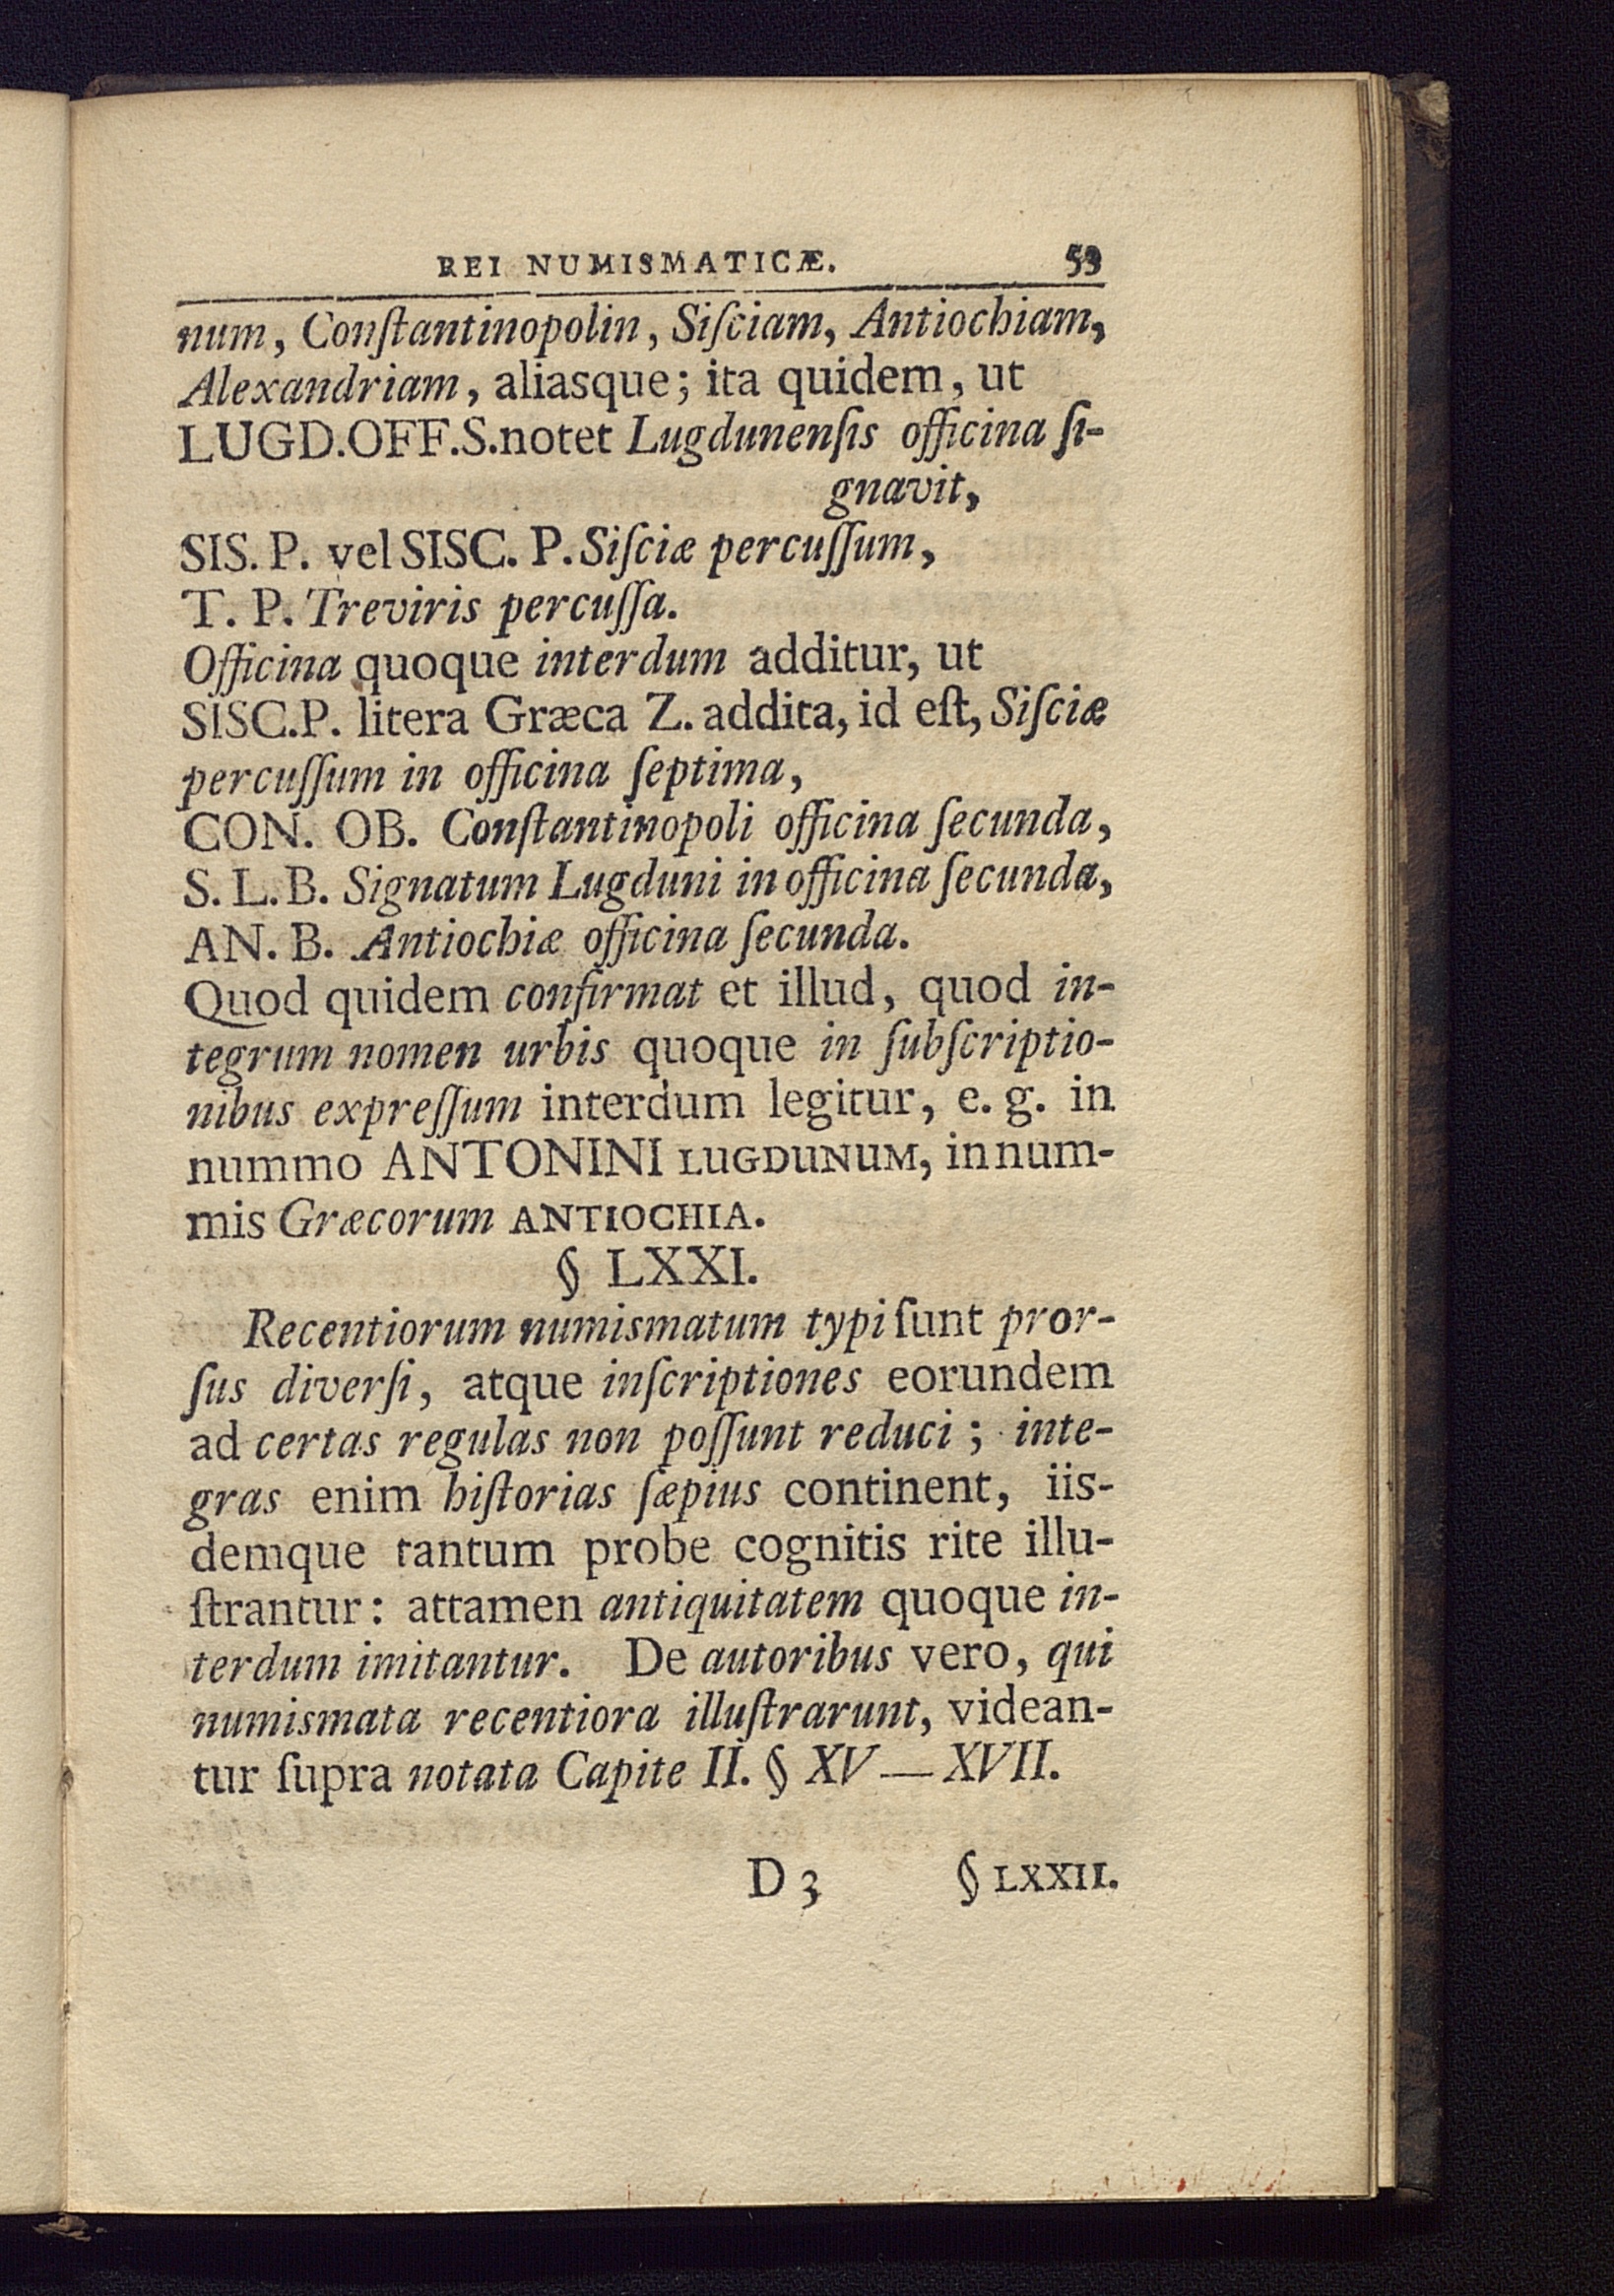 REI NUMISMATICÆ. 53
num, Conſtantinopolin, Siſciam, Antiochiam,
Alexandriam, aliasque; ita quidem, ut
LUGD.OFF.S.notet Lugdunenſis officina ſi-
gnavit,
SIS. P. vel SISC. P. Siſciæ percuſſum,
T. P. Treviris percuſſa.
Officina quoque interdum additur, ut
SISC.P. litera Græca Z. addita, id eſt, Siſciæ
percuſſum in officina ſeptima,
CON. OB. Conſtantinopoli officina ſecunda,
S. L. B. Signatum Lugduni in officina ſecunda,
AN. B. Antiochiæ officina ſecunda.
Quod quidem confirmat et illud, quod in-
tegrum nomen urbis quoque in ſubſcriptio-
nibus expreſſum interdum legitur, e. g. in
nummo ANTONINI LUGDUNUM, in num-
mis Græcorum ANTIOCHIA.
§ LXXI.
Recentiorum numismatum typi ſunt pror-
ſus diverſi, atque inſcriptiones eorundem
ad certas regulas non poſſunt reduci; inte-
gras enim hiſtorias ſæpius continent, iis-
demque tantum probe cognitis rite illu-
ſtrantur: attamen antiquitatem quoque in-
terdum imitantur. De autoribus vero, qui
numismata recentiora illuſtrarunt, videan-
tur ſupra notata Capite II. § XV — XVII.
D 3 § LXXII.